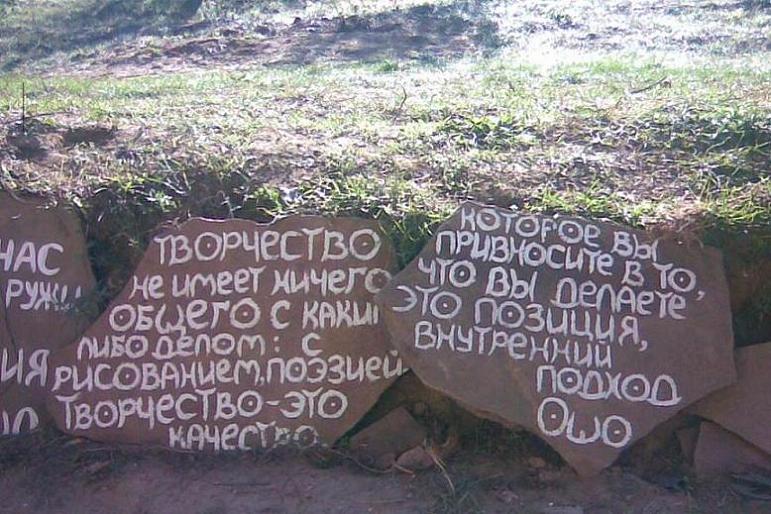 НАС
РУЖИ
ИЯ
Ю
ТВОРЧЕСТВО
НЕ ИМЕЕТ НИЧЕГО
ОБЩЕГО С КАКИМ
ЛИБО ДЕЛОМ: С
РИСОВАНИЕМ, ПОЭЗИЕЙ
ТВОРЧЕСТВО-ЭТО
КАЧЕСТВО
КОТОРОЕ ВЫ
ПРИВНОСИТЕ В ТО,
ЧТО ВЫ ДЕЛАЕТЕ
ЭТО ПОЗИЦИЯ,
ВНУТРЕННИЙ
ПОДХОД
ОШО